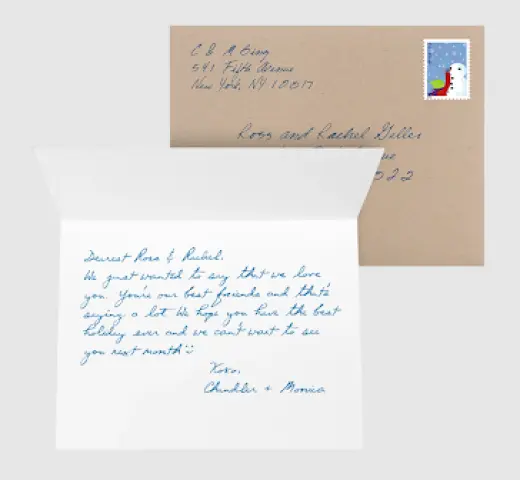 C & M Bing
541 Fifth Avenue
New York, NY 10017
Ross and Rachel Geller
ue
022
Dearest Ross & Rachel,
We just wanted to say that we love
you. You're our best friends and that's
saying a lot. We hope you have the best
holiday ever and we can't wait to see
you next month :)
Xoxo,
Chandler + Monica